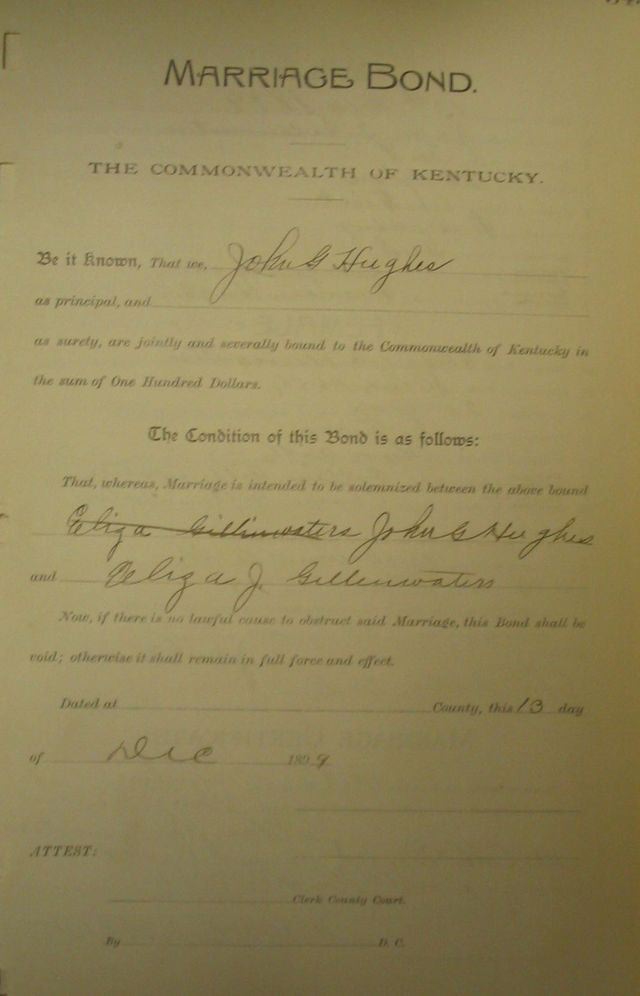 MARRIAGE BOND.
THE COMMONWEALTH OF KENTUCKY.
Be it Known, That we, John G Hughes
as principal, and
as surety, are jointly and severally bound to the Commonwealth of Kentucky in
the sum of One Hundred Dollars.
The Condition of this Bond is as follows:
That, whereas, Marriage is intended to be solemnized between the above bound
Eliza Gillinwaters John G Hughes
and Eliza J. Gillenwaters
Now, if there is no lawful cause to obstruct said Marriage, this Bond shall be
void; otherwise it shall remain in full force and effect.
Dated at County, this 13 day
of Dec 1899
ATTEST:
Clerk County Court.
By D. C.